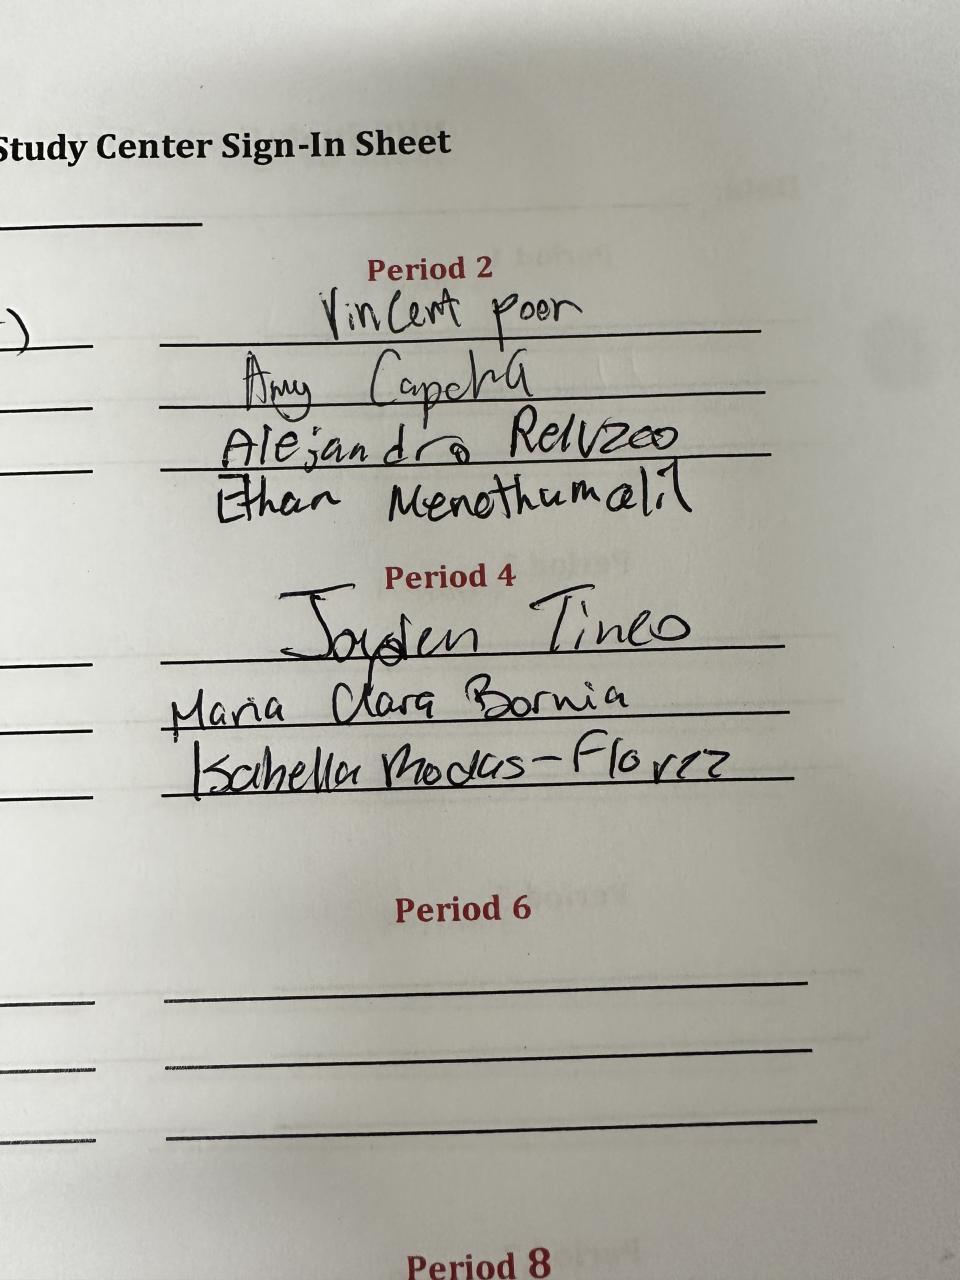 Study Center Sign-In Sheet
Period 2
Vincent poen
Amy Capcha
Alejandro Reluzco
Ethan Menothumalil
Period 4
Jayden Tineo
Maria Clara Bornia
Isabella Rhodas-Florez
Period 6
Period 8